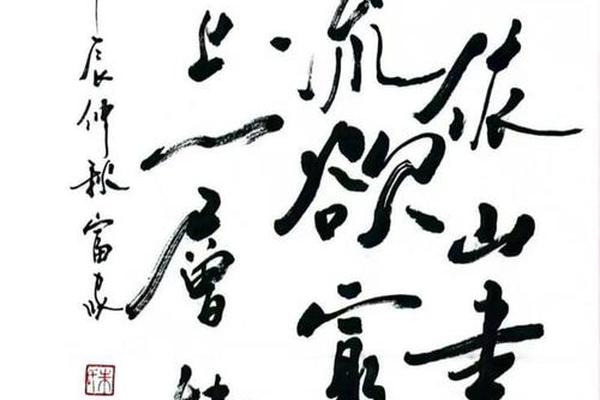 依山盡
流欲窮
上一層
辰仲秋富